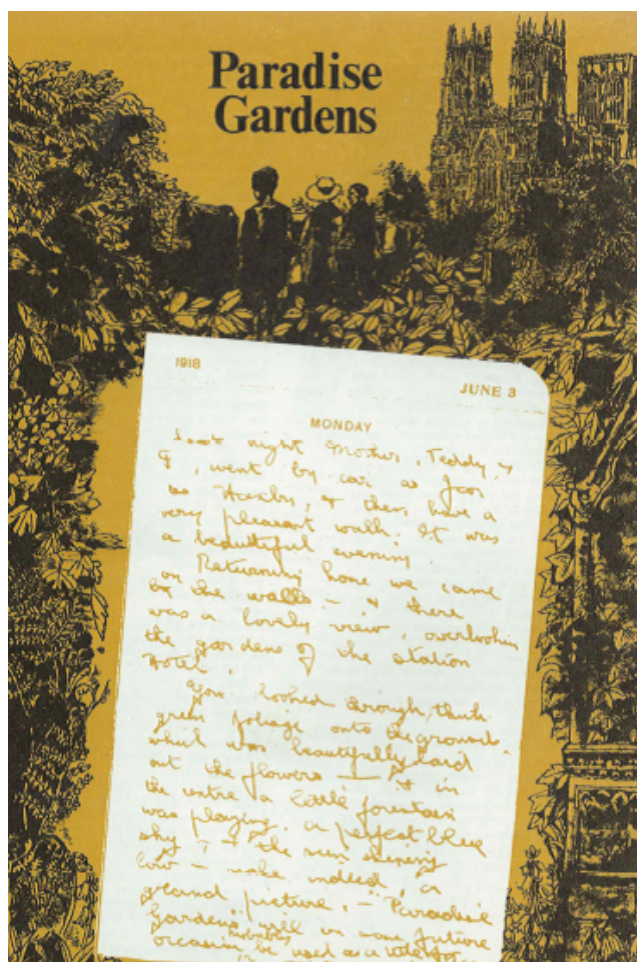 Paradise
Gardens
1918
JUNE 3
MONDAY
Last night Mother, Teddy, &
I, went by car as far
as Haxby, & then have a
very pleasant walk. It was
a beautiful evening
on Returning home we came
by the walls – & there
was a lovely view, overlooking
the gardens of the station
Hotel.
You looked through thick
green foliage onto the grounds,
which was beautifully laid
out the flowers — & in
the centre a little fountain
was playing. a perfect blue
sky & the sun shining
low – make indeed, a
grand picture, – "Paradise
Gardens" will on some future
occasion be used as a title for